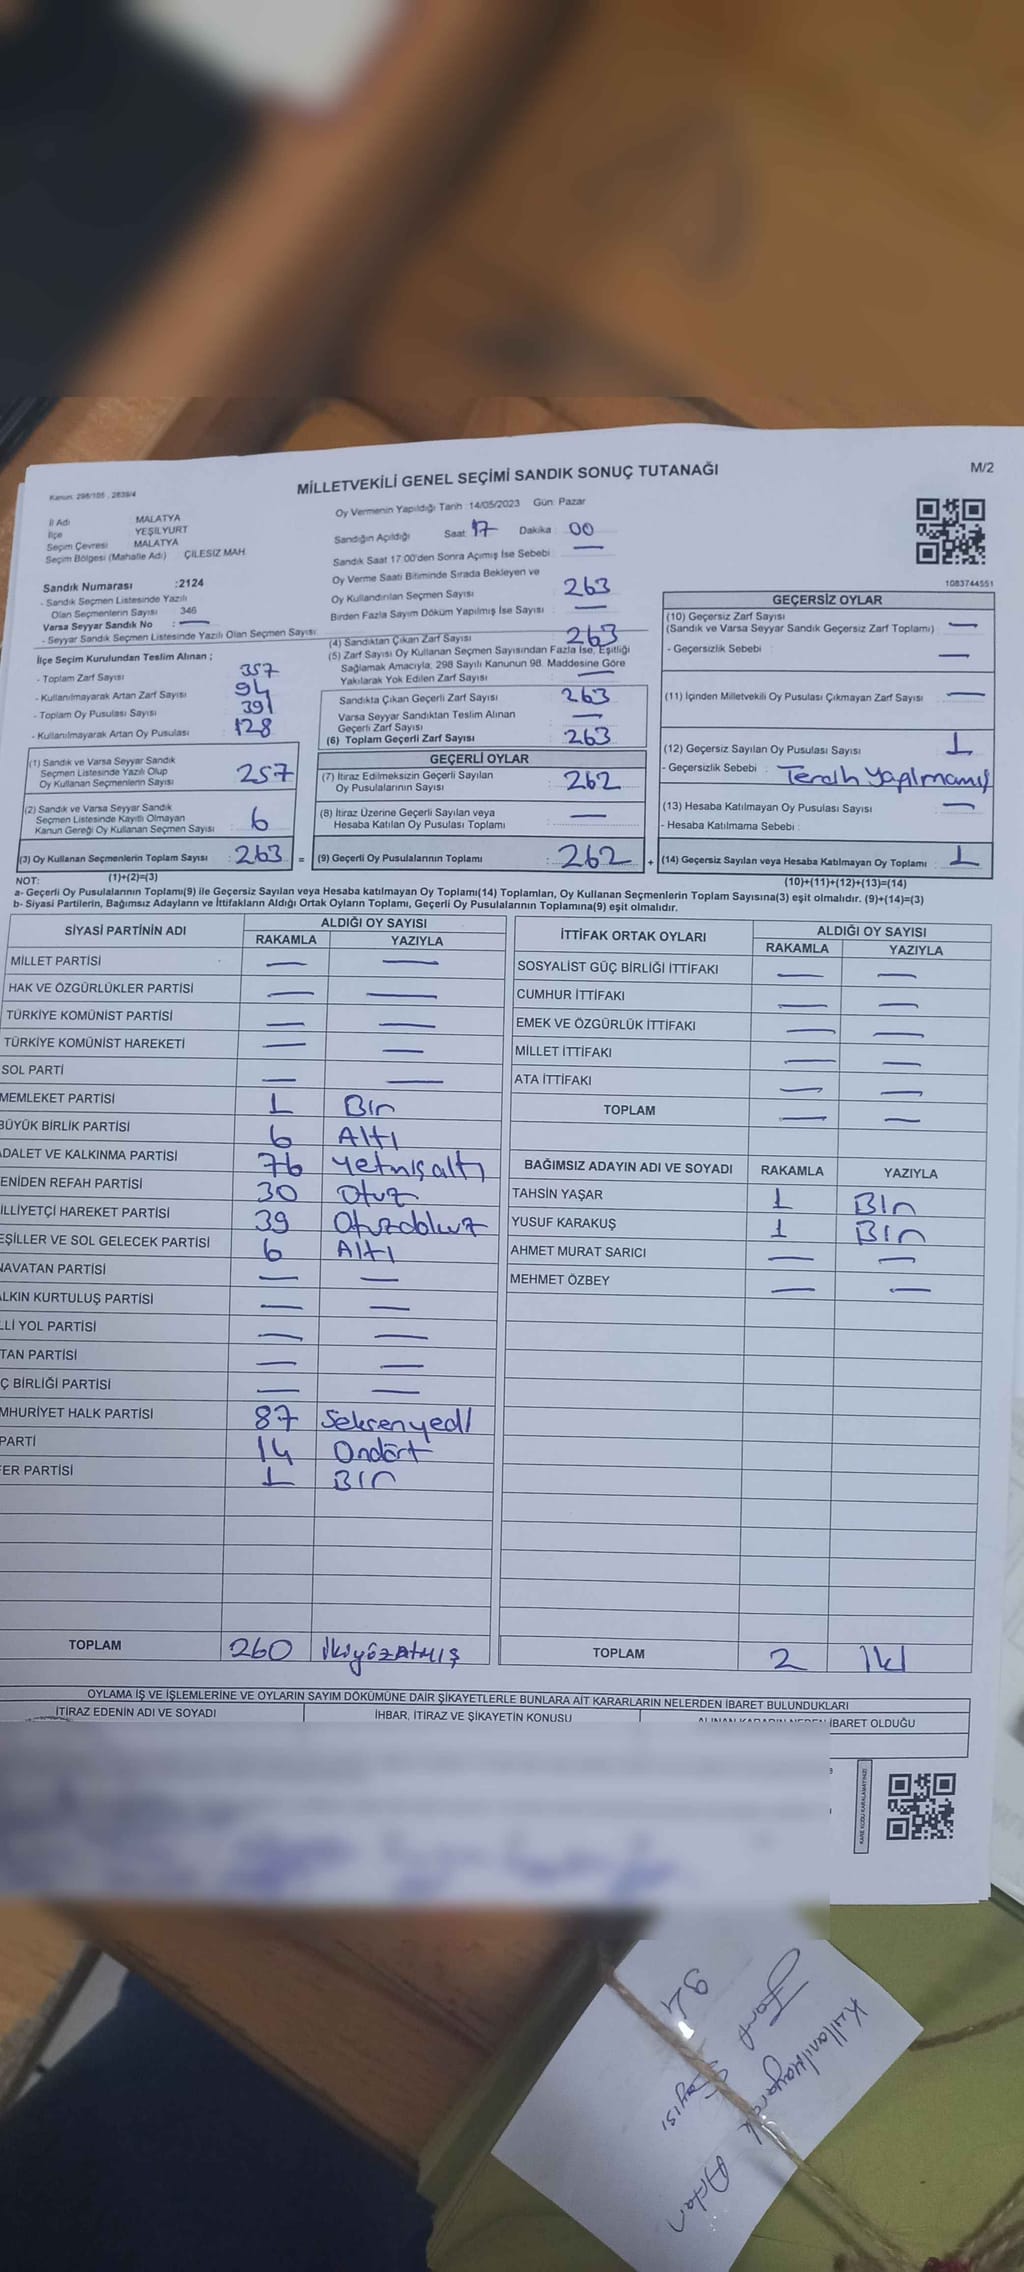 MİLLETVEKİLİ GENEL SEÇİMİ SANDIK SONUÇ TUTANAĞI
M/2
Kanun: 298/105 , 2839/4
İl Adı : MALATYA
İlçe : YEŞİLYURT
Seçim Çevresi : MALATYA
Seçim Bölgesi (Mahalle Adı) : ÇİLESİZ MAH
Sandık Numarası :2124
- Sandık Seçmen Listesinde Yazılı
Olan Seçmenlerin Sayısı : 346
Varsa Seyyar Sandık No : —
- Seyyar Sandık Seçmen Listesinde Yazılı Olan Seçmen Sayısı:
İlçe Seçim Kurulundan Teslim Alınan ;
- Toplam Zarf Sayısı : 357
- Kullanılmayarak Artan Zarf Sayısı : 94
- Toplam Oy Pusulası Sayısı : 391
- Kullanılmayarak Artan Oy Pusulası : 128
(1) Sandık ve Varsa Seyyar Sandık
Seçmen Listesinde Yazılı Olup
Oy Kullanan Seçmenlerin Sayısı : 257
(2) Sandık ve Varsa Seyyar Sandık
Seçmen Listesinde Kayıtlı Olmayan
Kanun Gereği Oy Kullanan Seçmen Sayısı : 6
(3) Oy Kullanan Seçmenlerin Toplam Sayısı : 263 =
Oy Vermenin Yapıldığı Tarih :14/05/2023 Gün: Pazar
Sandığın Açıldığı Saat: 17 Dakika : 00
Sandık Saat 17:00'den Sonra Açımış İse Sebebi : —
Oy Verme Saati Bitiminde Sırada Bekleyen ve
Oy Kullandırılan Seçmen Sayısı : 263
Birden Fazla Sayım Döküm Yapılmış İse Sayısı : —
(4) Sandıktan Çıkan Zarf Sayısı : 263
(5) Zarf Sayısı Oy Kullanan Seçmen Sayısından Fazla İse, Eşitliği
Sağlamak Amacıyla, 298 Sayılı Kanunun 98. Maddesine Göre
Yakılarak Yok Edilen Zarf Sayısı : —
Sandıkta Çıkan Geçerli Zarf Sayısı : 263
Varsa Seyyar Sandıktan Teslim Alınan
Geçerli Zarf Sayısı : —
(6) Toplam Geçerli Zarf Sayısı : 263
GEÇERLİ OYLAR
(7) İtiraz Edilmeksizin Geçerli Sayılan
Oy Pusulalarının Sayısı : 262
(8) İtiraz Üzerine Geçerli Sayılan veya
Hesaba Katılan Oy Pusulası Toplamı : —
(9) Geçerli Oy Pusulalarının Toplamı : 262 +
1083744551
GEÇERSİZ OYLAR
(10) Geçersiz Zarf Sayısı
(Sandık ve Varsa Seyyar Sandık Geçersiz Zarf Toplamı) : —
- Geçersizlik Sebebi : —
(11) İçinden Milletvekili Oy Pusulası Çıkmayan Zarf Sayısı : —
(12) Geçersiz Sayılan Oy Pusulası Sayısı : 1
- Geçersizlik Sebebi : Tercih Yapılmamış
(13) Hesaba Katılmayan Oy Pusulası Sayısı : —
- Hesaba Katılmama Sebebi :
(14) Geçersiz Sayılan veya Hesaba Katılmayan Oy Toplamı : 1
NOT: (1)+(2)=(3) (10)+(11)+(12)+(13)=(14)
a- Geçerli Oy Pusulalarının Toplamı(9) ile Geçersiz Sayılan veya Hesaba katılmayan Oy Toplamı(14) Toplamları, Oy Kullanan Seçmenlerin Toplam Sayısına(3) eşit olmalıdır. (9)+(14)=(3)
b- Siyasi Partilerin, Bağımsız Adayların ve İttifakların Aldığı Ortak Oyların Toplamı, Geçerli Oy Pusulalarının Toplamına(9) eşit olmalıdır.
SİYASİ PARTİNİN ADI ALDIĞI OY SAYISI
RAKAMLA YAZIYLA
MİLLET PARTİSİ — —
HAK VE ÖZGÜRLÜKLER PARTİSİ — —
TÜRKİYE KOMÜNİST PARTİSİ — —
TÜRKİYE KOMÜNİST HAREKETİ — —
SOL PARTİ — —
MEMLEKET PARTİSİ 1 Bir
BÜYÜK BİRLİK PARTİSİ 6 Altı
ADALET VE KALKINMA PARTİSİ 76 Yetmişaltı
ENİDEN REFAH PARTİSİ 30 Otuz
İLLİYETÇİ HAREKET PARTİSİ 39 Otuzdokuz
EŞİLLER VE SOL GELECEK PARTİSİ 6 Altı
NAVATAN PARTİSİ — —
ALKIN KURTULUŞ PARTİSİ — —
LLİ YOL PARTİSİ — —
TAN PARTİSİ — —
Ç BİRLİĞİ PARTİSİ — —
MHURİYET HALK PARTİSİ 87 Seksenyedi
PARTİ 14 Ondört
FER PARTİSİ 1 Bir
TOPLAM 260 İkiyüzAtmış
İTTİFAK ORTAK OYLARI ALDIĞI OY SAYISI
RAKAMLA YAZIYLA
SOSYALİST GÜÇ BİRLİĞİ İTTİFAKI — —
CUMHUR İTTİFAKI — —
EMEK VE ÖZGÜRLÜK İTTİFAKI — —
MİLLET İTTİFAKI — —
ATA İTTİFAKI — —
TOPLAM — —
BAĞIMSIZ ADAYIN ADI VE SOYADI RAKAMLA YAZIYLA
TAHSİN YAŞAR 1 Bir
YUSUF KARAKUŞ 1 Bir
AHMET MURAT SARICI — —
MEHMET ÖZBEY — —
TOPLAM 2 İki
OYLAMA İŞ VE İŞLEMLERİNE VE OYLARIN SAYIM DÖKÜMÜNE DAİR ŞİKAYETLERLE BUNLARA AİT KARARLARIN NELERDEN İBARET BULUNDUKLARI
İTİRAZ EDENİN ADI VE SOYADI İHBAR, İTİRAZ VE ŞİKAYETİN KONUSU ALINAN KARARIN NEDEN İBARET OLDUĞU
KARE KODU KARALAMAYINIZ!
Kullanılmayarak Artan
Zarf Sayısı
94